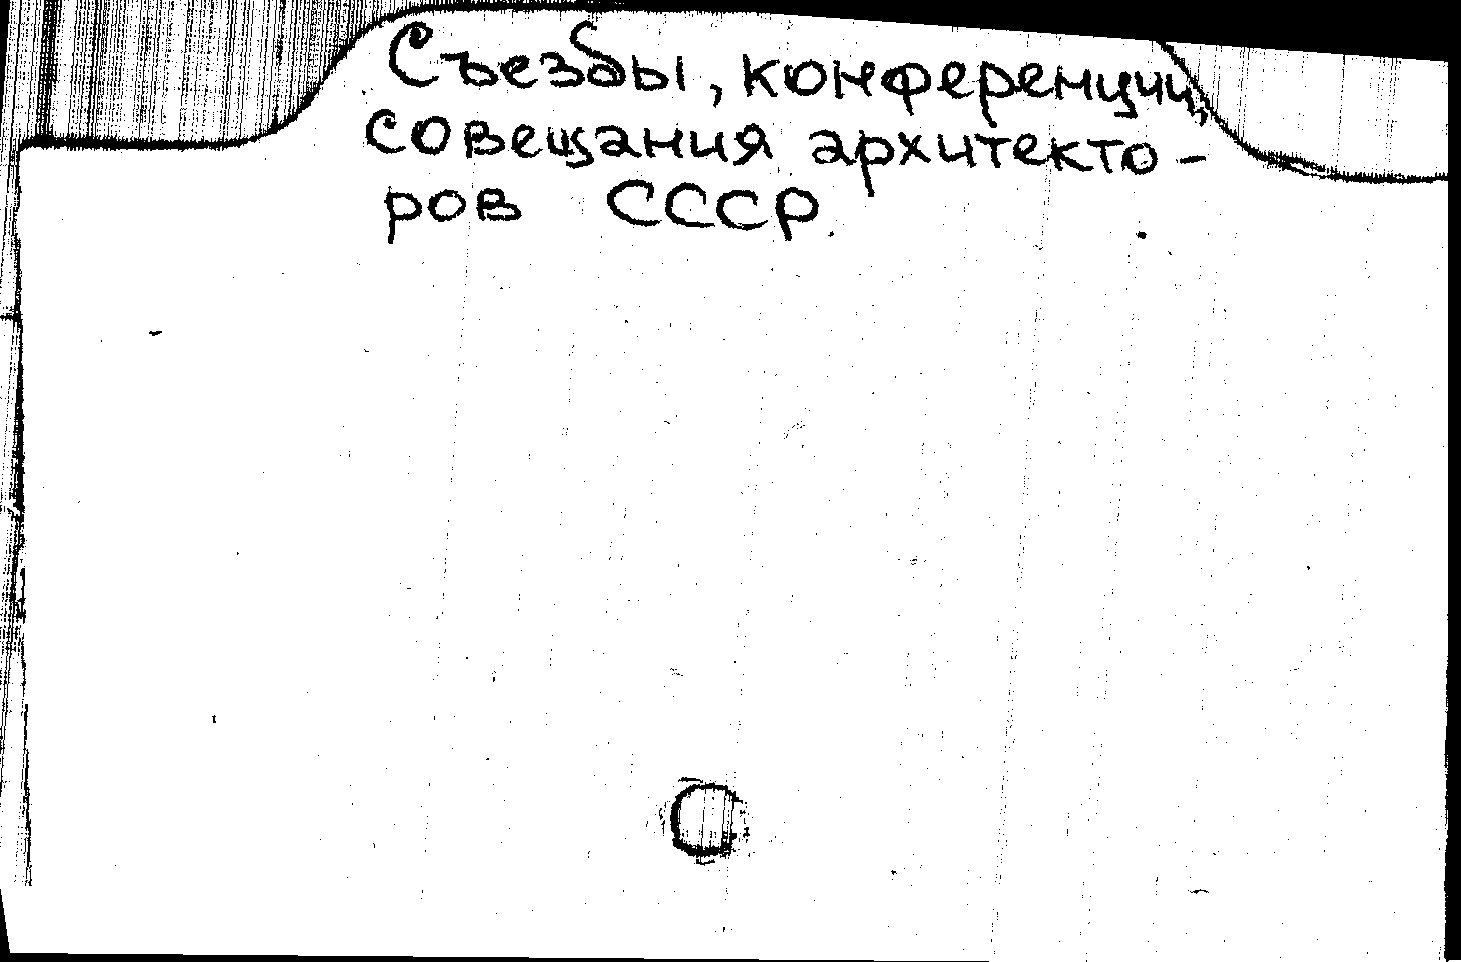 Съезды, конференции,
совещания архитекто-
ров СССР